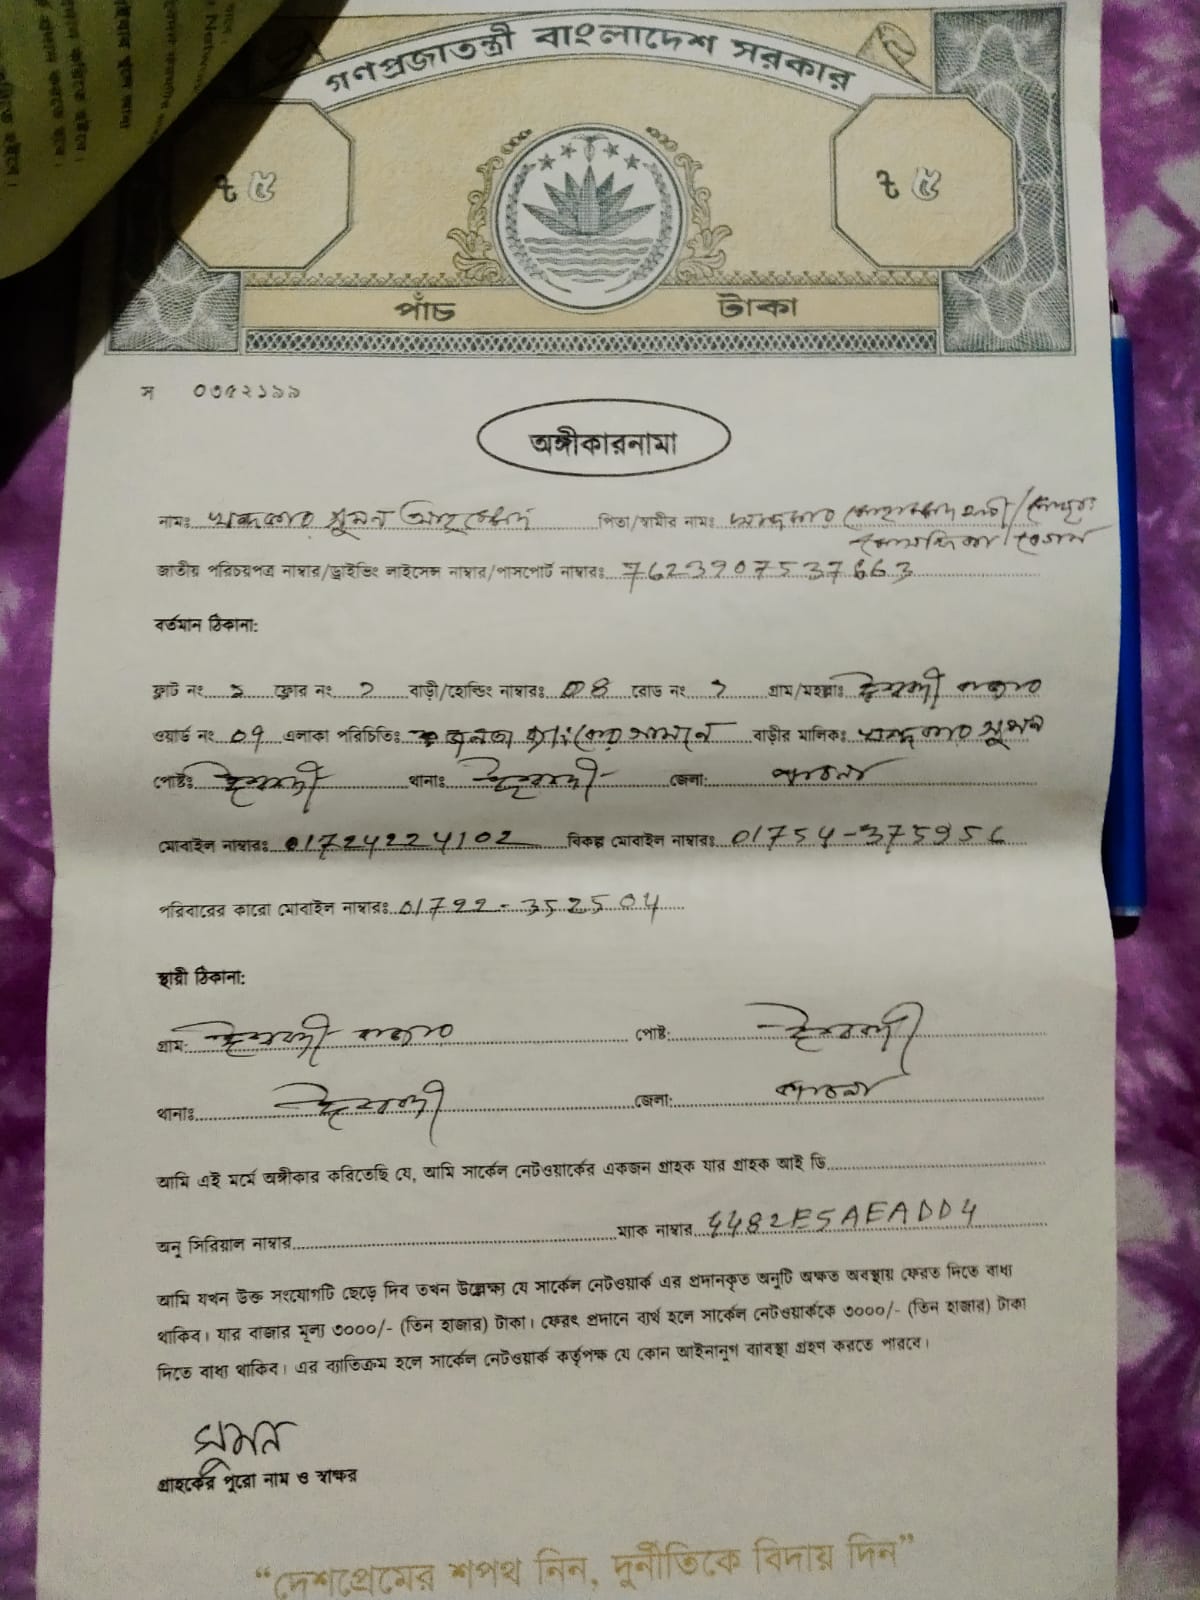 গণপ্রজাতন্ত্রী বাংলাদেশ সরকার
৳ ৫ ৳ ৫
পাঁচ টাকা
স ০৩৫২১৯৯
অঙ্গীকারনামা
নামঃ খন্দকার সুমন আহমেদ পিতা/স্বামীর নাম:
জাতীয় পরিচয়পত্র নাম্বার/ড্রাইভিং লাইসেন্স নাম্বার/পাসপোর্ট নাম্বারঃ 7623907537663
বর্তমান ঠিকানা:
ফ্লাট নং ফ্লোর নং বাড়ী/হোল্ডিং নাম্বারঃ 08 রোড নং গ্রাম/মহল্লাঃ ঈশ্বরদী বাজার
ওয়ার্ড নং 09 এলাকা পরিচিতিঃ জনতা ব্যাংকের সামনে বাড়ীর মালিকঃ খন্দকার সুমন
পোষ্টঃ ঈশ্বরদী থানাঃ ঈশ্বরদী জেলা: পাবনা
মোবাইল নাম্বারঃ 01724224102 বিকল্প মোবাইল নাম্বারঃ 01754-375956
পরিবারের কারো মোবাইল নাম্বারঃ 01792-352504
স্থায়ী ঠিকানা:
গ্রাম: ঈশ্বরদী বাজার পোষ্ট: ঈশ্বরদী
থানাঃ ঈশ্বরদী জেলা: পাবনা
আমি এই মর্মে অঙ্গীকার করিতেছি যে, আমি সার্কেল নেটওয়ার্কের একজন গ্রাহক যার গ্রাহক আই ডি
অনু সিরিয়াল নাম্বার ম্যাক নাম্বার 4482E5AEADD4
আমি যখন উক্ত সংযোগটি ছেড়ে দিব তখন উল্লেক্ষ্য যে সার্কেল নেটওয়ার্ক এর প্রদানকৃত অনুটি অক্ষত অবস্থায় ফেরত দিতে বাধ্য
থাকিব। যার বাজার মূল্য ৩০০০/- (তিন হাজার) টাকা। ফেরৎ প্রদানে ব্যর্থ হলে সার্কেল নেটওয়ার্ককে ৩০০০/- (তিন হাজার) টাকা
দিতে বাধ্য থাকিব। এর ব্যাতিক্রম হলে সার্কেল নেটওয়ার্ক কর্তৃপক্ষ যে কোন আইনানুগ ব্যাবস্থা গ্রহণ করতে পারবে।
সুমন
গ্রাহকের পুরো নাম ও স্বাক্ষর
“দেশপ্রেমের শপথ নিন, দুর্নীতিকে বিদায় দিন”